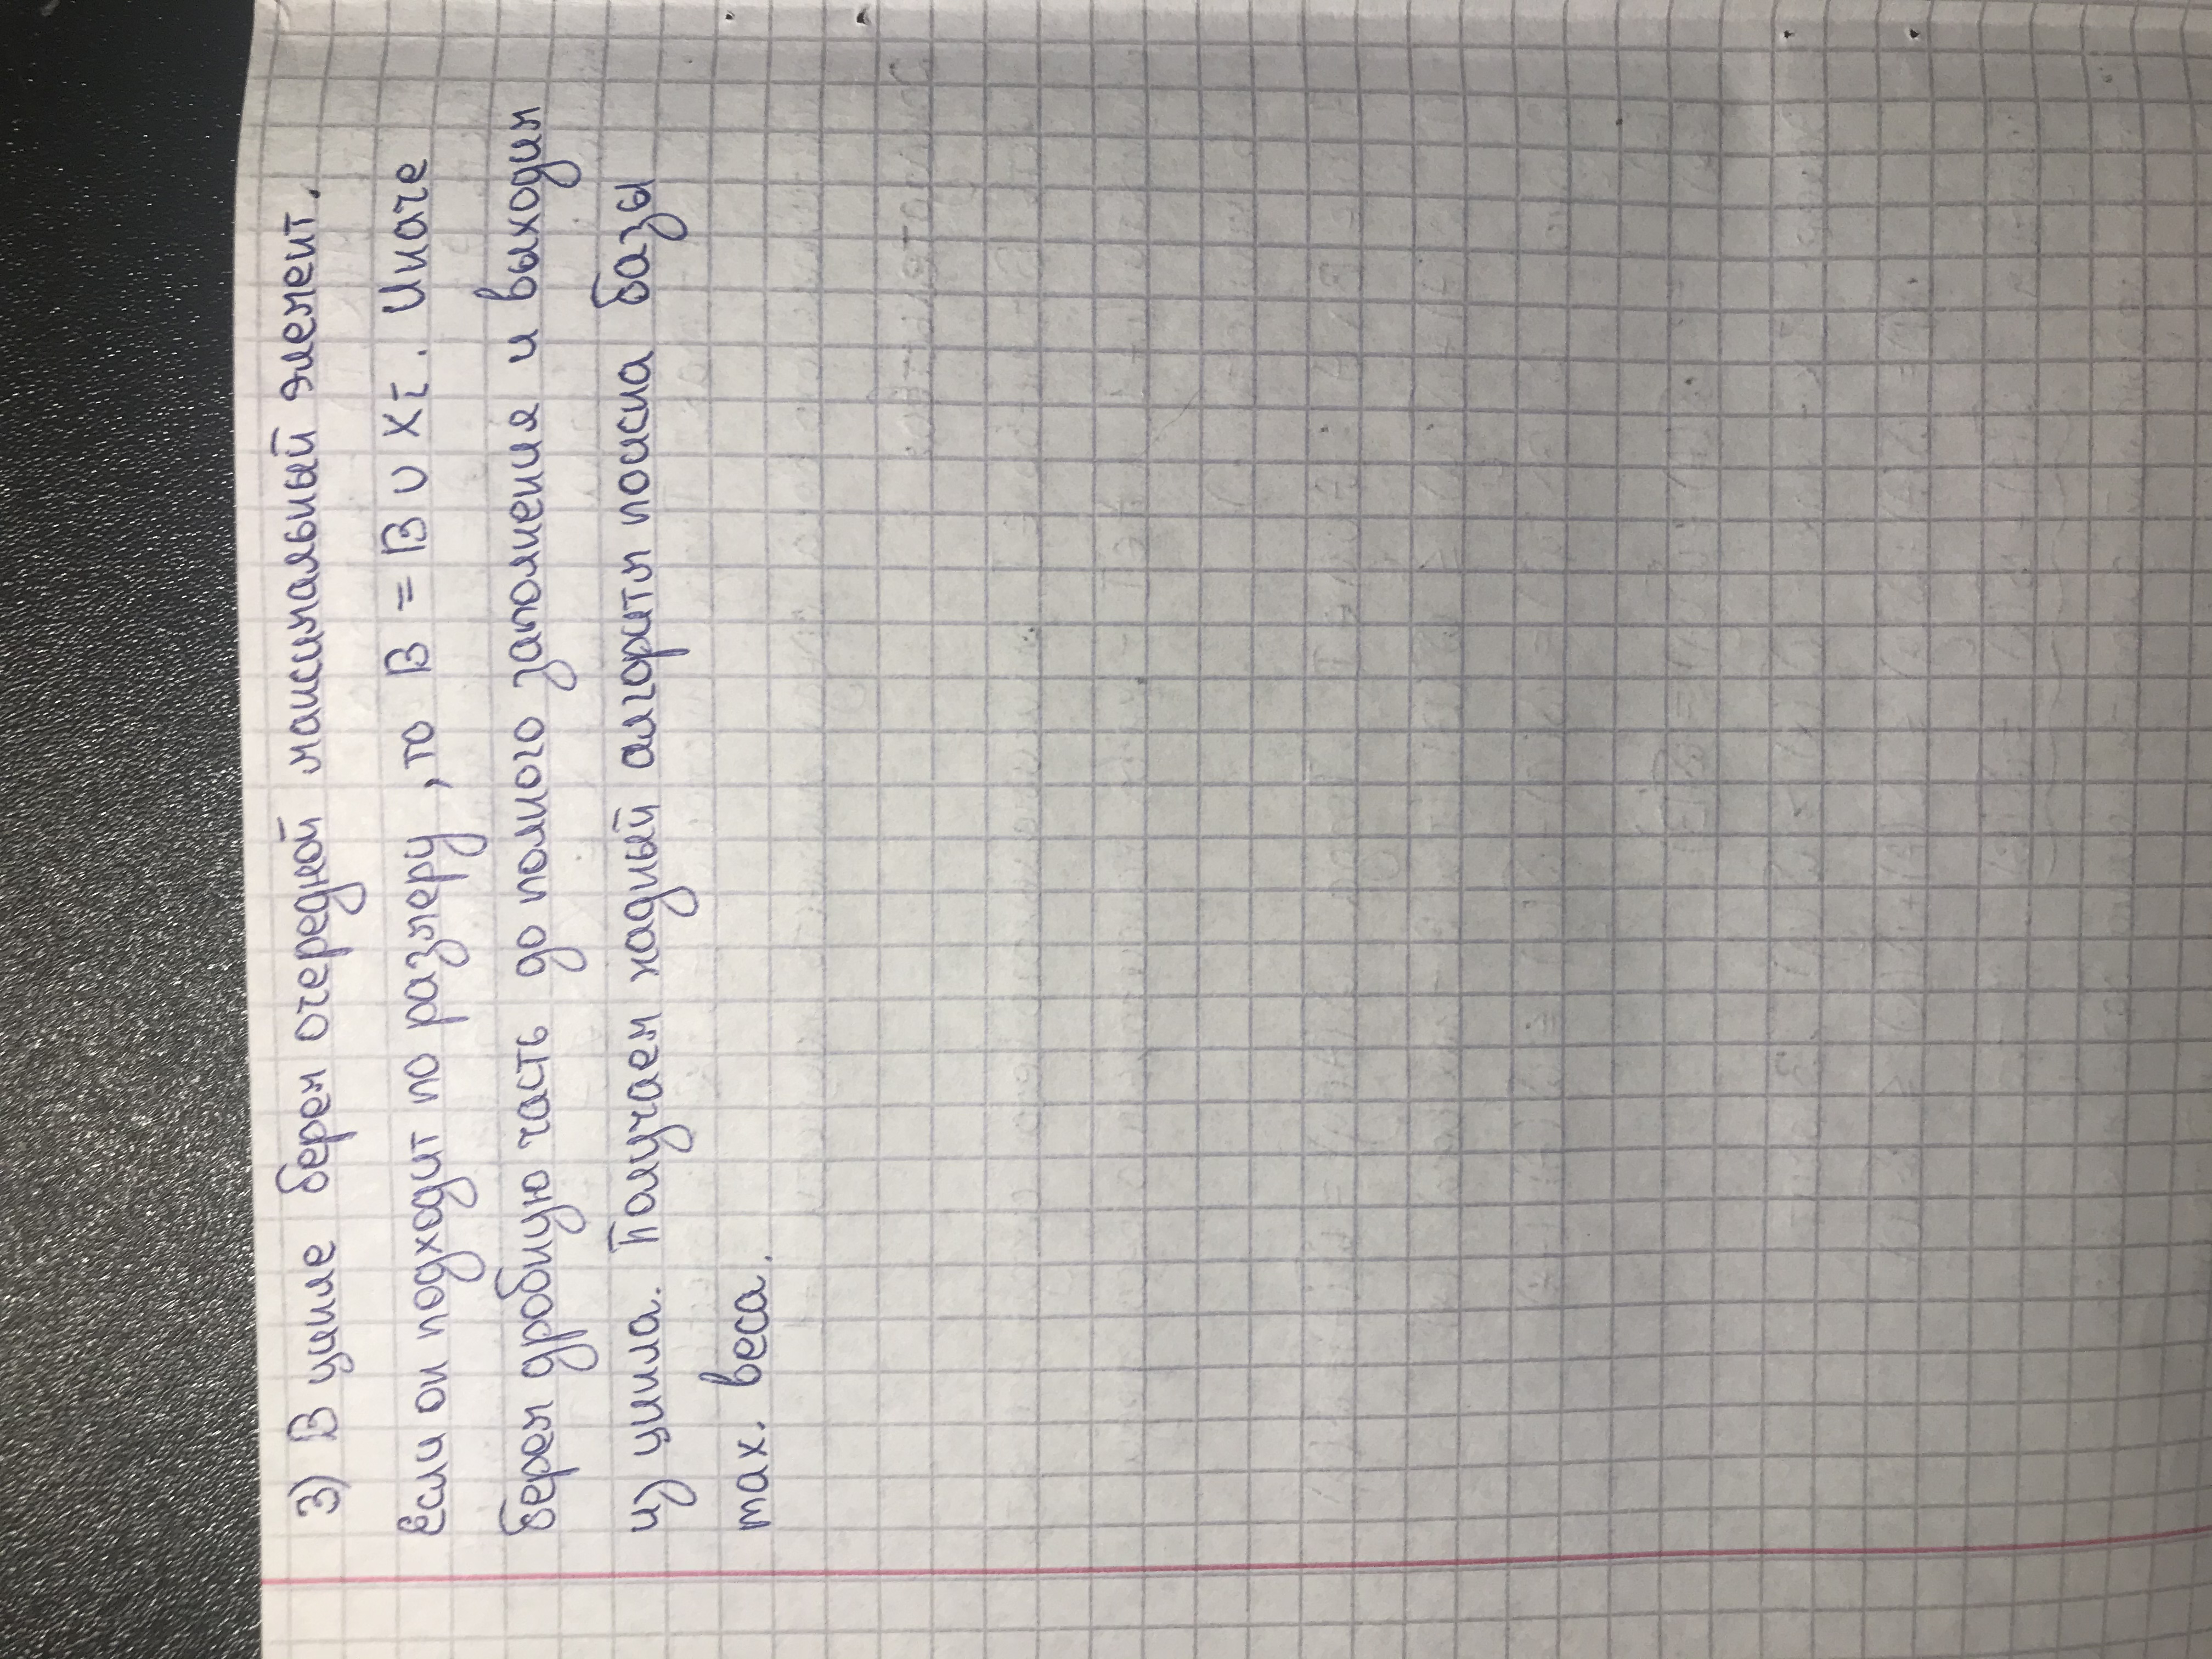 3) В цикле берем очередной максимальный элемент.
Если он подходит по размеру, то B = B ∪ Xi. Иначе
берем дробную часть до полного заполнения и выходим
из цикла. Получаем жадный алгоритм поиска базы
max. веса.